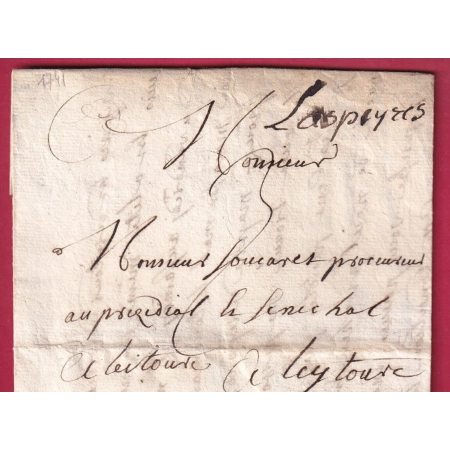 1741
Laspeyres
A Monsieur
Monsieur Soucaret procureur
au presidial & senechal
a leitoure a leytoure